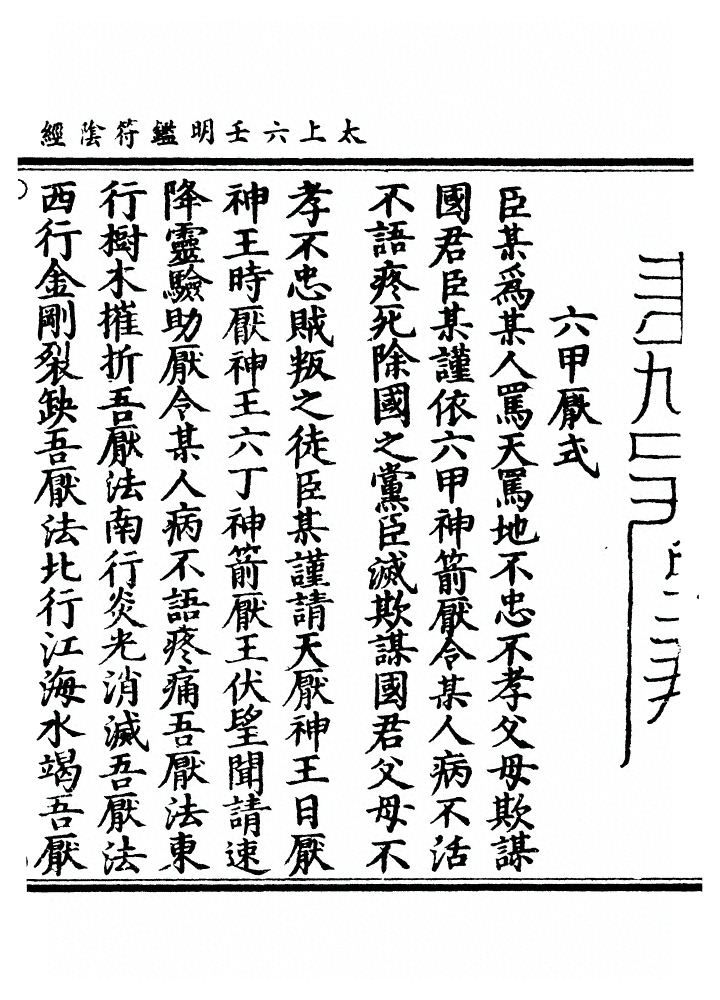 太上六壬明鑑符陰經
六甲厭式
臣某為某人罵天罵地不忠不孝父母欺謀
國君臣某謹依六甲神箭厭令某人病不活
不語疼死除國之黨臣滅欺謀國君父母不
孝不忠賊叛之徒臣某謹請天厭神王日厭
神王時厭神王六丁神箭厭王伏望聞請速
降靈驗助厭令某人病不語疼痛吾厭法東
行樹木摧折吾厭法南行炎光消滅吾厭法
西行金剛裂缺吾厭法北行江海水竭吾厭